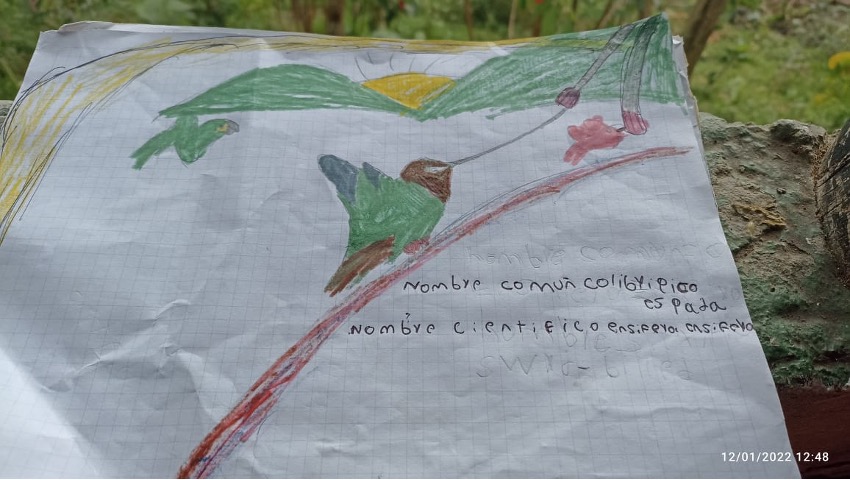 Nombre comun colibripico
espada
Nombre cientifico ensifera ensifera
12/01/2022 12:48